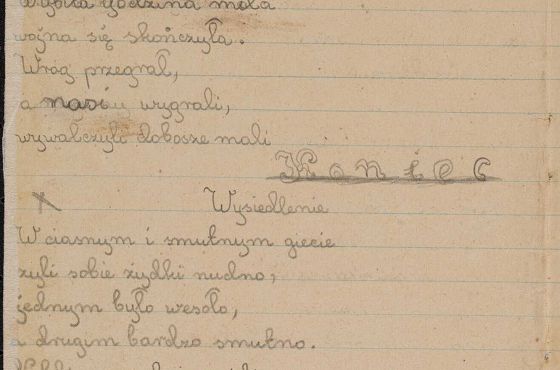 Wybiła godzina mała
wojna się skończyła.
Wróg przegrał,
a nasi wygrali,
wywalczyli dobosze mali
Koniec
Wysiedlenie
W ciasnym i smutnym giecie
żyli sobie żydki nudno,
jednym było wesoło,
a drugim bardzo smutno.